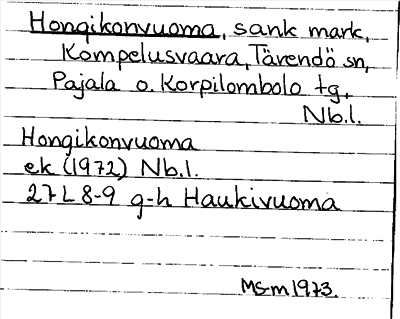 Hongikonvuoma, sank mark,
Kompelusvaara, Tärendö sn,
Pajala o. Korpilombolo tg,
Nb.l.
Hongikonvuoma
ek (1972) Nb.l.
27L 8-9 g-h Haukivuoma
MS-m 1973.